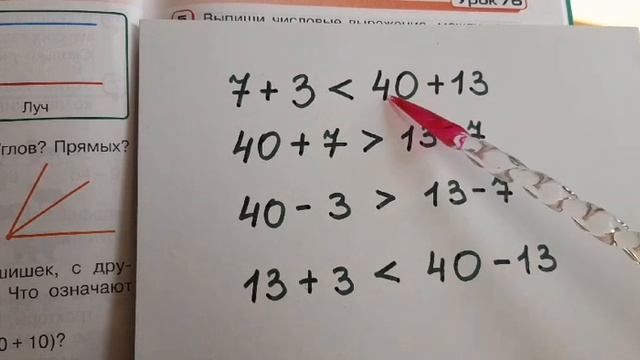 Урок 76
5 Выпиши числовые выражения, между
Луч
углов? Прямых?
шишек, с дру-
Что означают
0 + 10)?
7 + 3 < 40 + 13
40 + 7 > 13 7
40 - 3 > 13 - 7
13 + 3 < 40 - 13